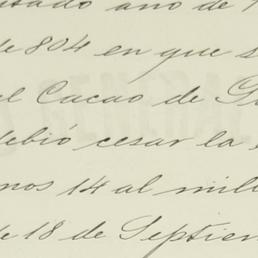 ado año de
de 804 en que s
el Cacao de G
debió cesar la
nos 14 al mill
de 18 de Septiem